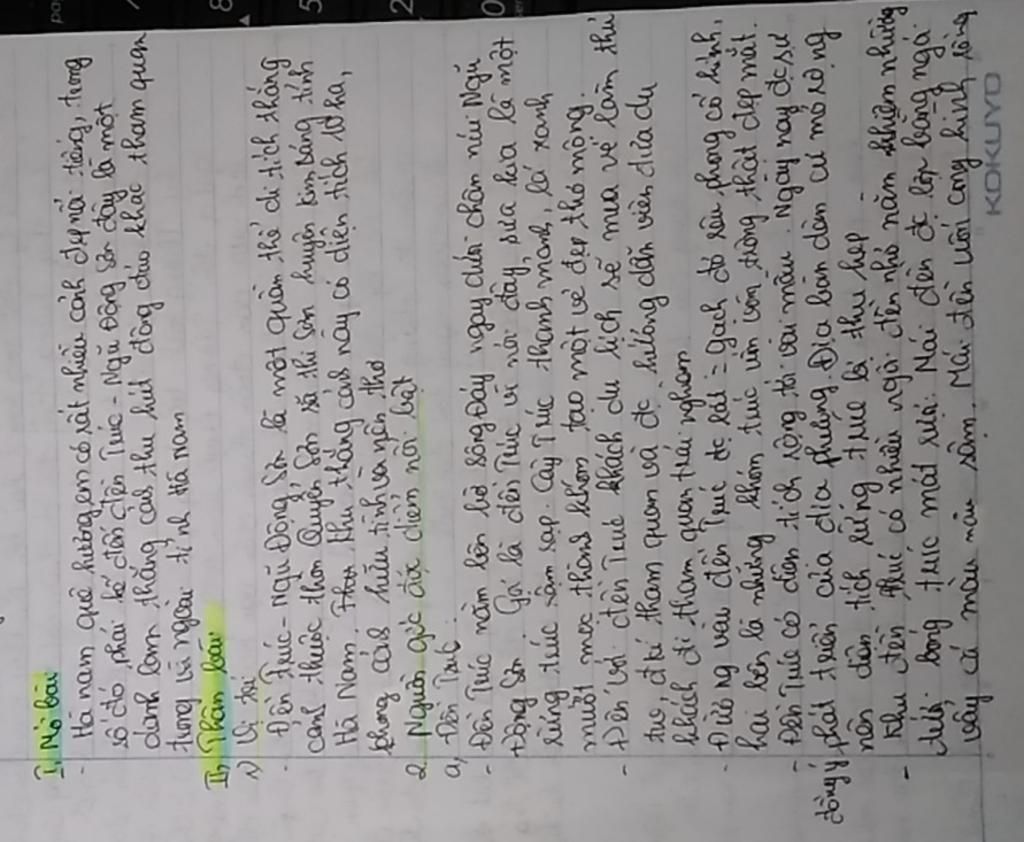 I, Mở bài
- Hà nam quê hương em có rất nhiều cảnh đẹp nổi tiếng, trong
số đó, phải kể đến đền Trúc - Ngũ Động Sơn đây là một
danh lam thắng cảnh thu hút đông đảo khác tham quan
trong và ngoài tỉnh Hà Nam
II, Thân bài
1) Vị trí
- Đền Trúc - Ngũ Động Sơn là một quần thể di tích thắng
cảnh thuộc thôn Quyển Sơn xã thi Sơn huyện kim bảng tỉnh
Hà Nam. Khu thắng cảnh này có diện tích 10 ha,
phong cảnh hữu tình và nên thơ
2. Nguồn gốc đặc điểm nổi bật
a, Đền Trúc
- Đền Trúc nằm bên bờ sông Đáy ngay dưới chân núi Ngũ
Động Sơn. Gọi là đền Trúc vì nơi đây, xưa kia là một
rừng trúc rậm rạp. Cây Trúc thanh mảnh, lá xanh
mướt mọc thành khóm tạo một vẻ đẹp thơ mộng.
- Đến với đền Trúc khách du lịch sẽ mua vé làm thủ
tục, đc tham quan và đc hướng dẫn viên đưa du
khách đi tham quan trải nghiệm
- Đường vào đền Trúc đc lát = gạch đỏ rêu phong cổ kính,
hai bên là những khóm trúc uốn vòm trông thật đẹp mắt.
- Đền Trúc có diện tích rộng tới vài mẫu. Ngày nay đc sự
đồng ý phát triển của địa phương Địa bàn dân cư mở rộng
nên diện tích rừng trúc bị thu hẹp
- Khu đền Trúc có nhiều ngôi đền nhỏ nằm khiêm nhường
dưới bóng trúc mát rượi. Mái đền đc lợp bằng ngói
vảy cá màu nâu sậm. Mái đền uốn cong hình sống
KOKUYO